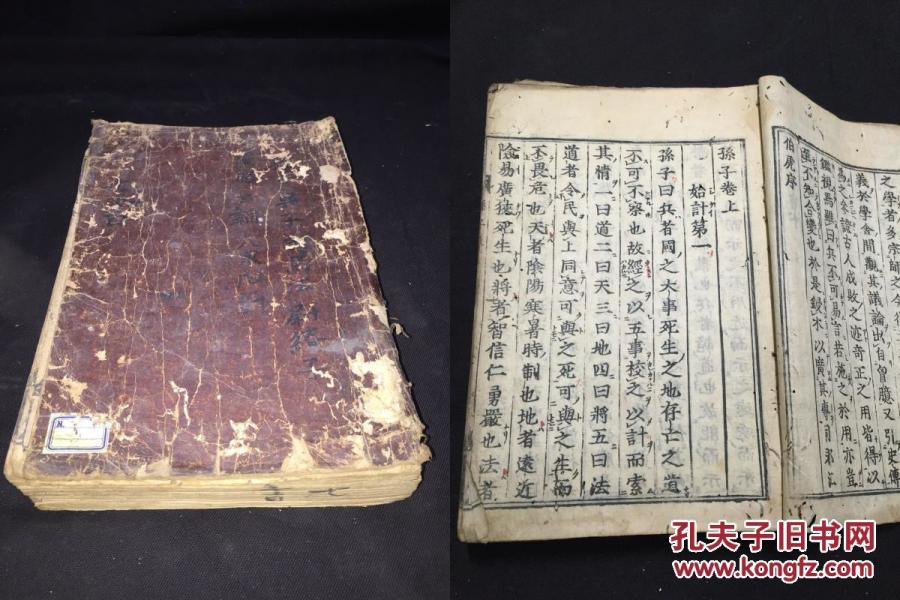 之學者多宗師之今
義於學舍間觀其議論出自胷臆又引史傳
爲之參證古人成敗之迹奇正之用皆得以
鑑揭焉雖曰兵不可易言若施之於用亦豈
不知合變也於是鋟木以廣其傳
伯虎序
孫子卷上
始計第一
孫子曰兵者國之大事死生之地存亡之道
不可不察也故經之以五事校之以計而索
其情一曰道二曰天三曰地四曰將五曰法
道者令民與上同意可與之死可與之生而
不畏危也天者陰陽寒暑時制也地者遠近
險易廣狹死生也將者智信仁勇嚴也法者
孔夫子旧书网
www.kongfz.com